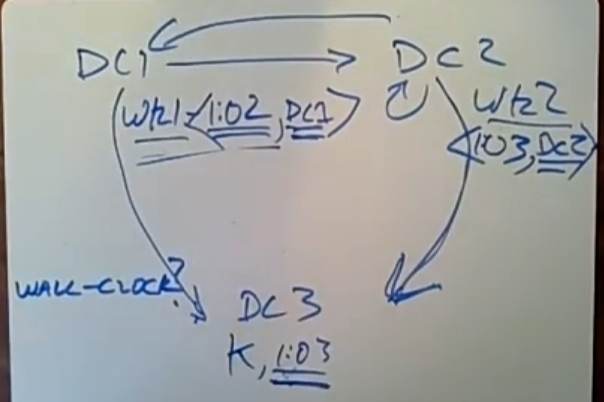 DC1
DC2
Wr1 <1:02, DC1>
Wr2
<1:03, DC2>
WALL-CLOCK?
DC3
K, 1:03